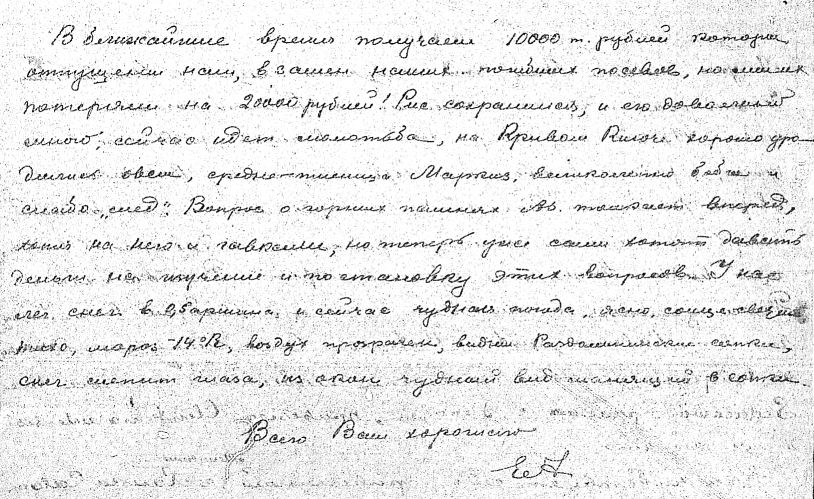 В ближайшие время получаем 10000 т. рублей которы
отпущены нам, взамен наших погибших посевов, но мы их
потеряли на 20000 рублей! Рис сохранился, и его довольно
много, сейчас идет молотьба, на Кривом Ключе хорошо уро
дились овсы, средне - пшеница Маркиз, великолепно бобы и
слабо, . Вопрос о горных пашнях Ав. толкает вперед,
хотя на него и гавкали, но теперь уже сами хотят давать
деньги на изучение и постановку этих вопросов. У нас
лег снег в 0,5 аршина и сейчас чудная погода, ясно, солнце светит
тихо, мороз -14°R, воздух прозрачен, видны сопки,
снег слепит глаза, из окон чудный вид манящий в сопки.
Всего Вам хорошего